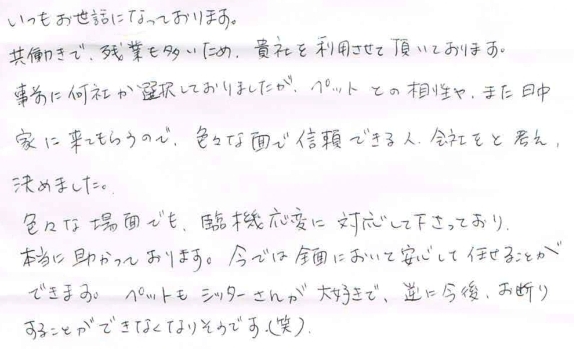 いつもお世話になっております。
共働きで、残業も多いため、貴社を利用させて頂いております。
事前に何社か選択しておりましたが、ペットとの相性や、また日中
家に来てもらうので、色々な面で信頼できる人、会社をと考え、
決めました。
色々な場面でも、臨機応変に対応して下さっており、
本当に助かっております。今では全面において安心して任せることが
できます。ペットもシッターさんが大好きで、逆に今後、お断り
することができなくなりそうです。(笑)